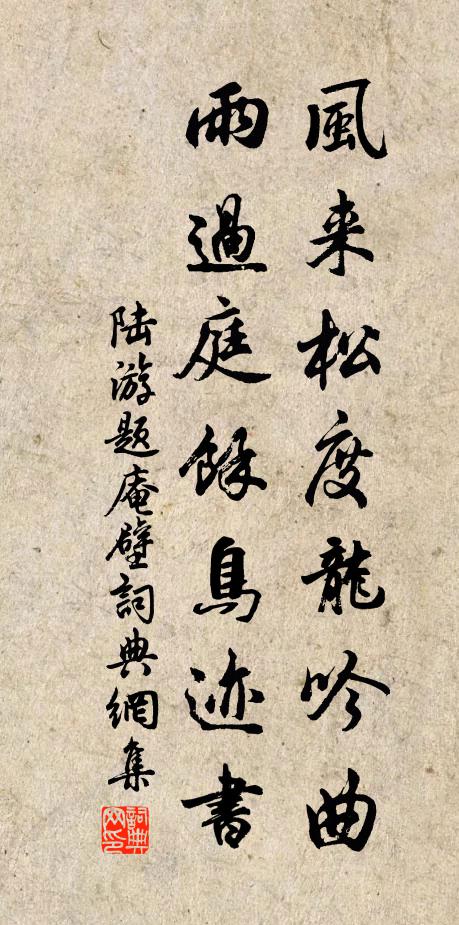 風来松度龍吟曲
雨過庭餘鳥迹書
陆游題庵壁詞典網集
詞典
网印